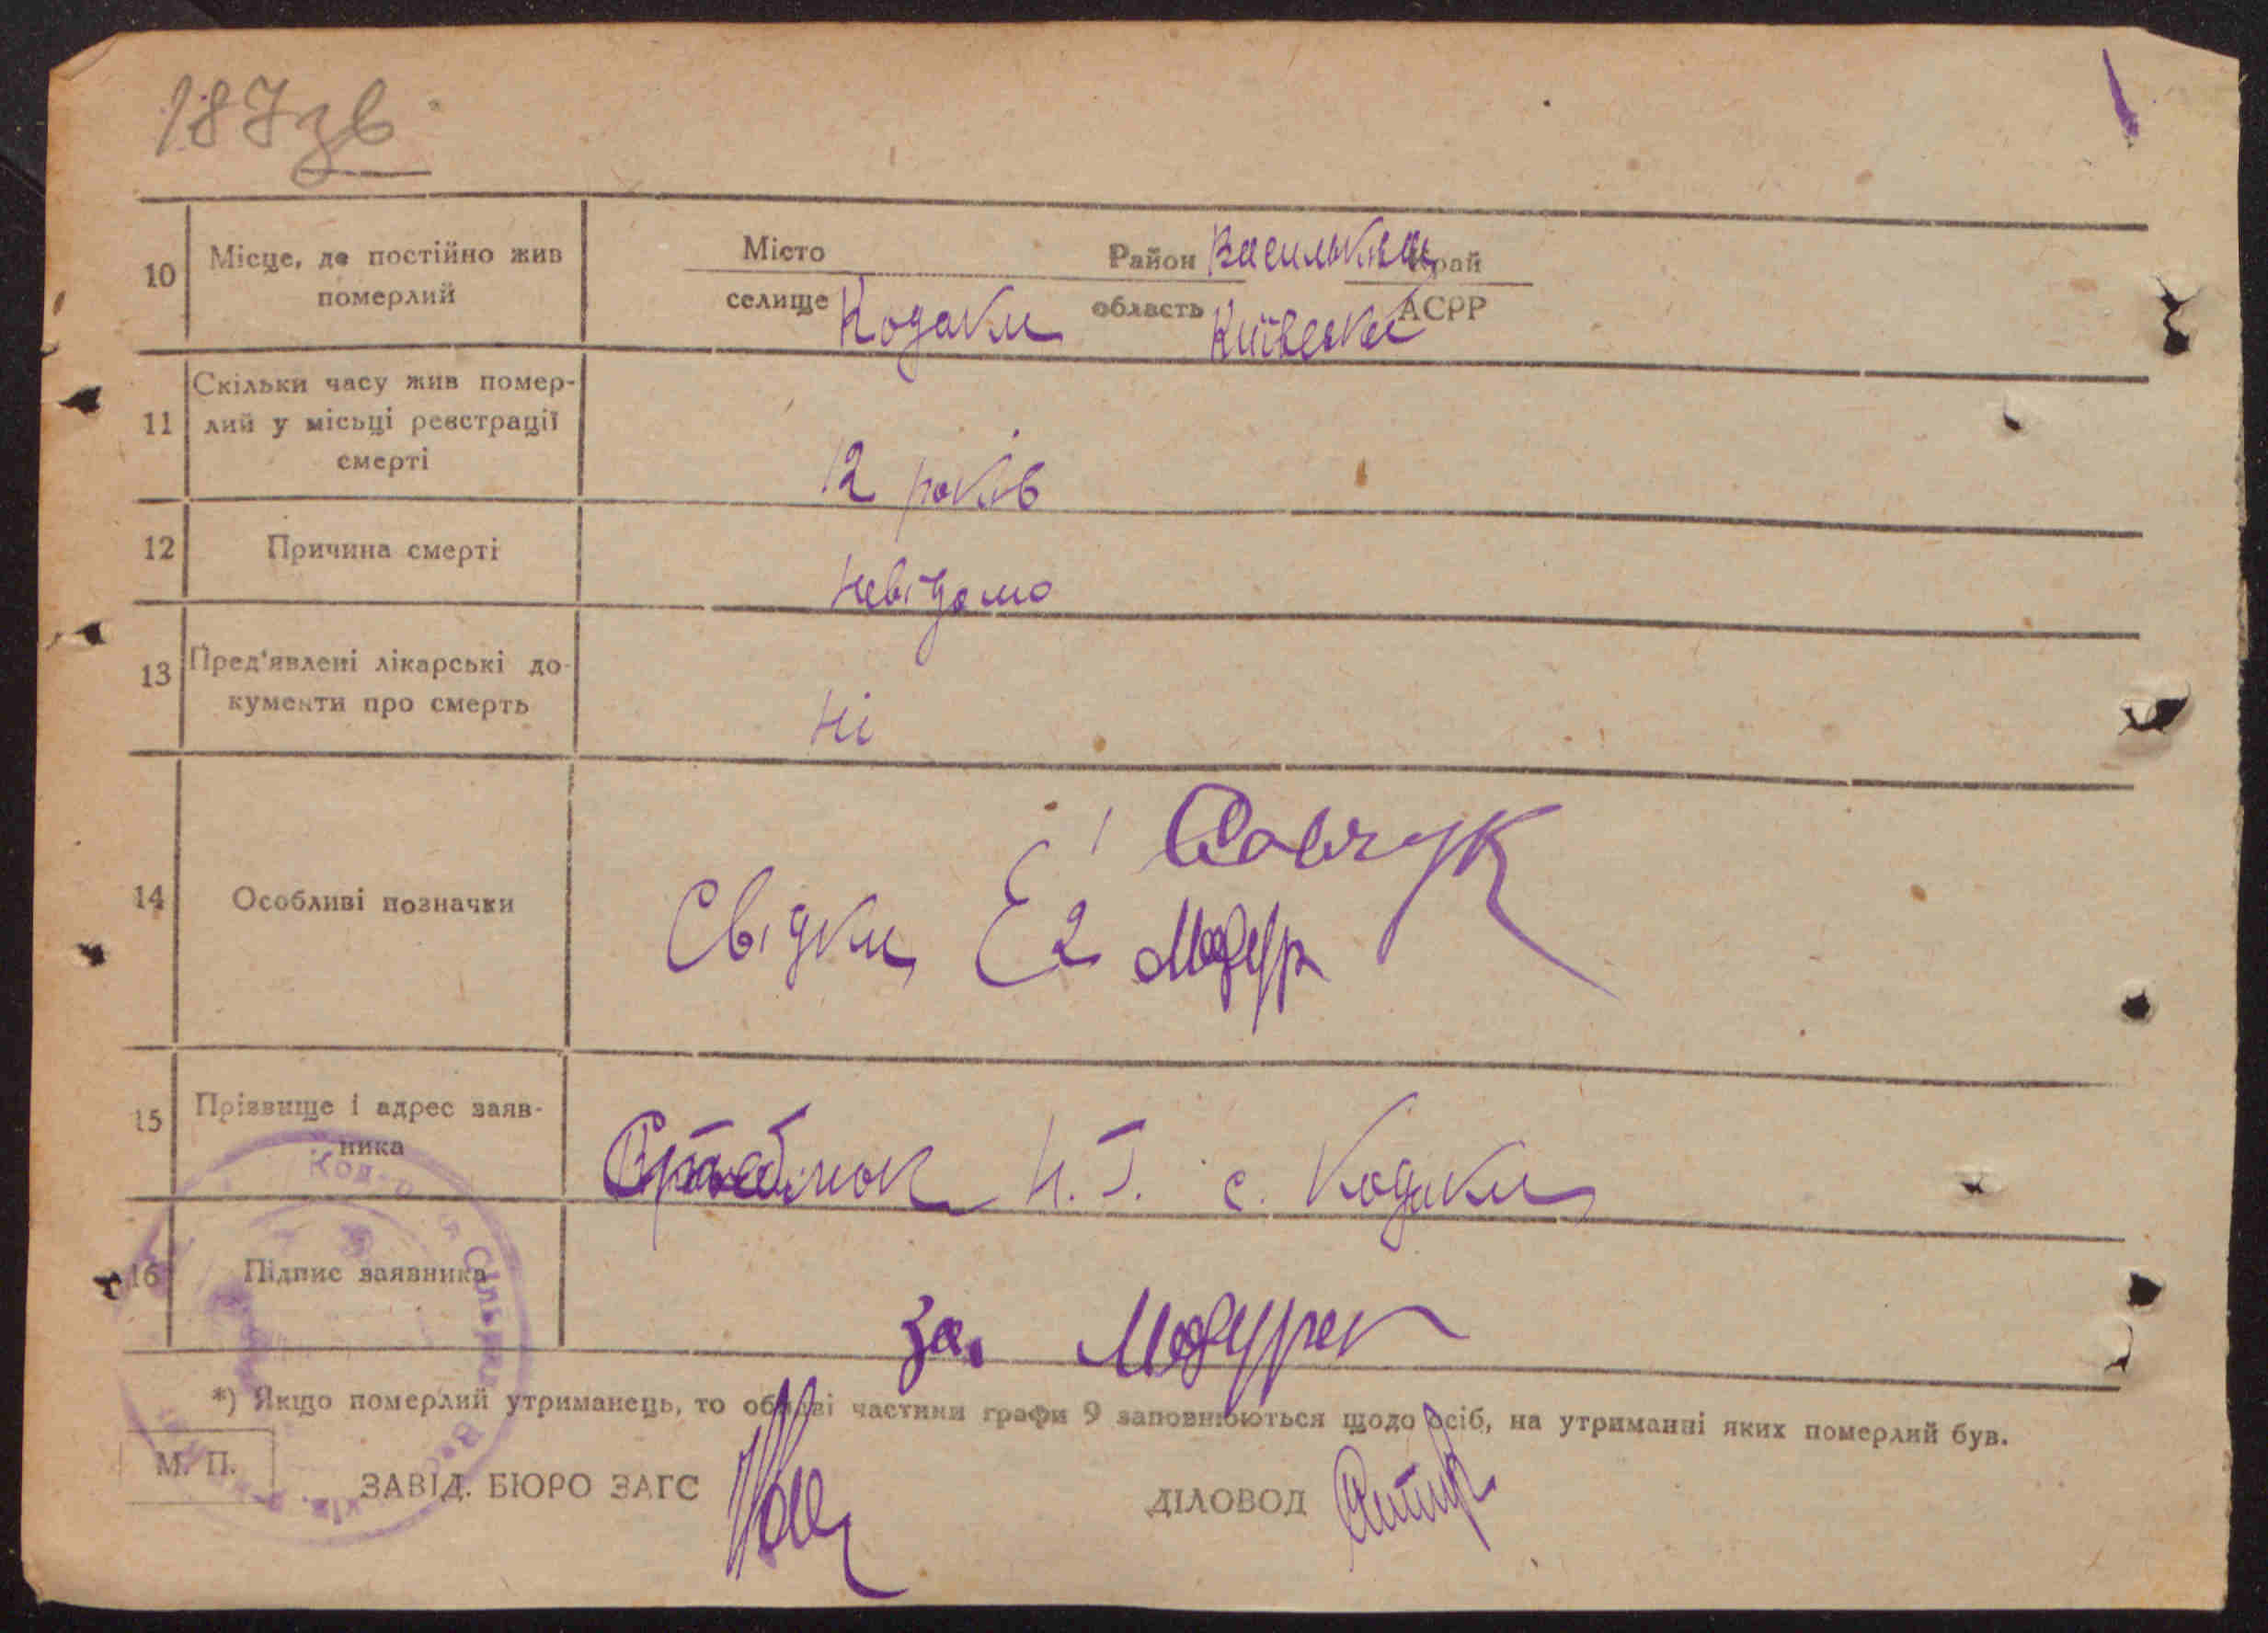 187зв
10 Місце, де постійно жив померлий
Місто Район Васильків Край
селище Кодаки область Київська АСРР
11 Скільки часу жив помер-
лий у місьці реєстрації
смерті
12 років
12 Причина смерті невідомо
13 Пред'явлені лікарські до-
кументи про смерть
Ні
14 Особливі позначки
1 Савчук
Свідки 2 Мазур
15 Прізвище і адрес заяв-
ника
Н. Г. с. Кодаки
16 Підпис заявника
за. Мазурек
*) Якщо померлий утриманець, то обидві частини графи 9 заповнюються щодо осіб, на утриманні яких померлий був.
М. П.
ЗАВІД. БЮРО ЗАГС ДІЛОВОД
Сільська